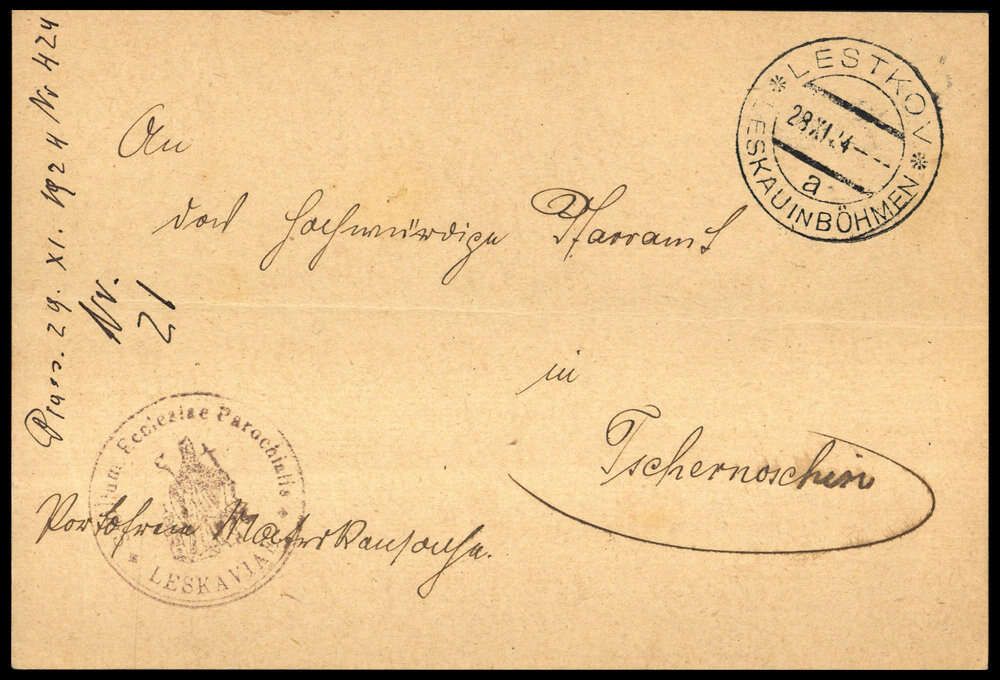 Präs. 29. XI. 1924 Nr 424
Nr.
21
An
das hochwürdige Pfarramt
in
Tschernoschin
Portofreie Matrikensache.
* LESTKOV *
28.XI.24
a
LESKAU IN BÖHMEN
Ecclesiae Parochialis
* LESKAVIAE *